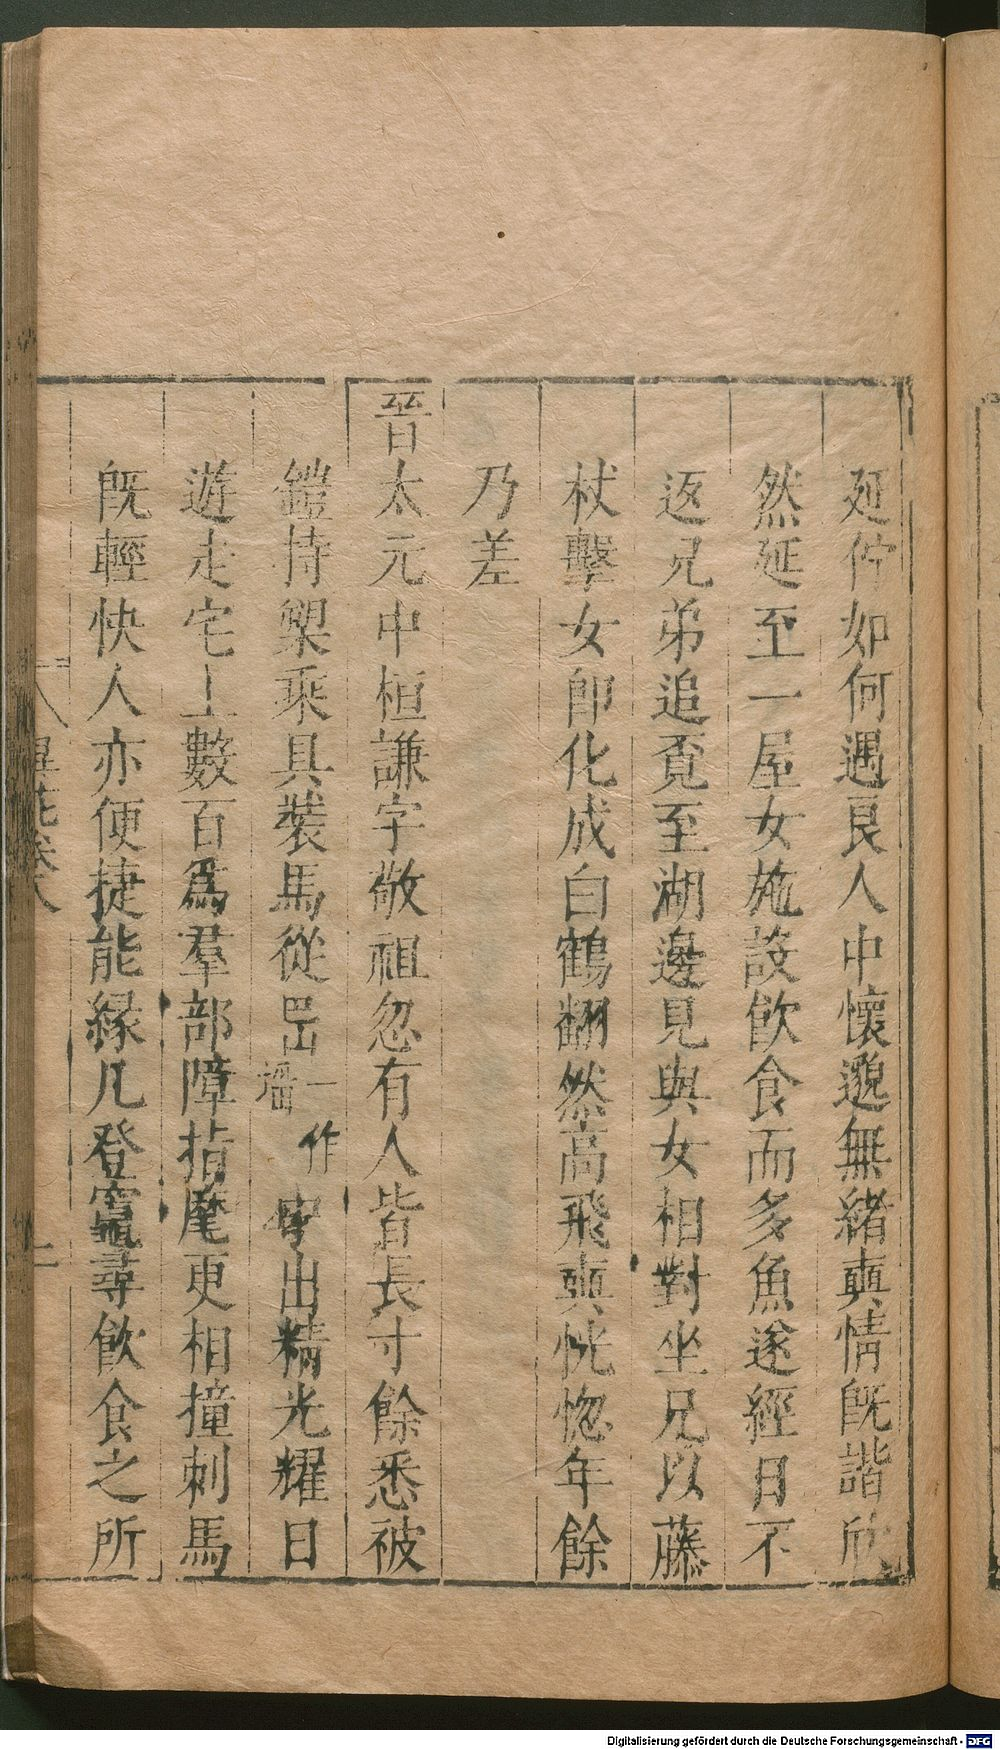 延佇如何遇良人中懷邈無緒奭情既諧欣
然延至一屋女施設飲食而多魚遂經日不
返兄弟追覔至湖邊見與女相對坐兄以藤
杖擊女即化成白鶴翻然高飛奭恍惚年餘
乃差
晉太元中桓謙字敬祖忽有人皆長寸餘悉被
鎧持槊乘具裝馬從㟭一作塪中出精光耀日
遊走宅上數百爲羣部障指麾更相撞刺馬
既輕快人亦便捷能緣几登竈尋飲食之所
異苑卷八
Digitalisierung gefördert durch die Deutsche Forschungsgemeinschaft - DFG